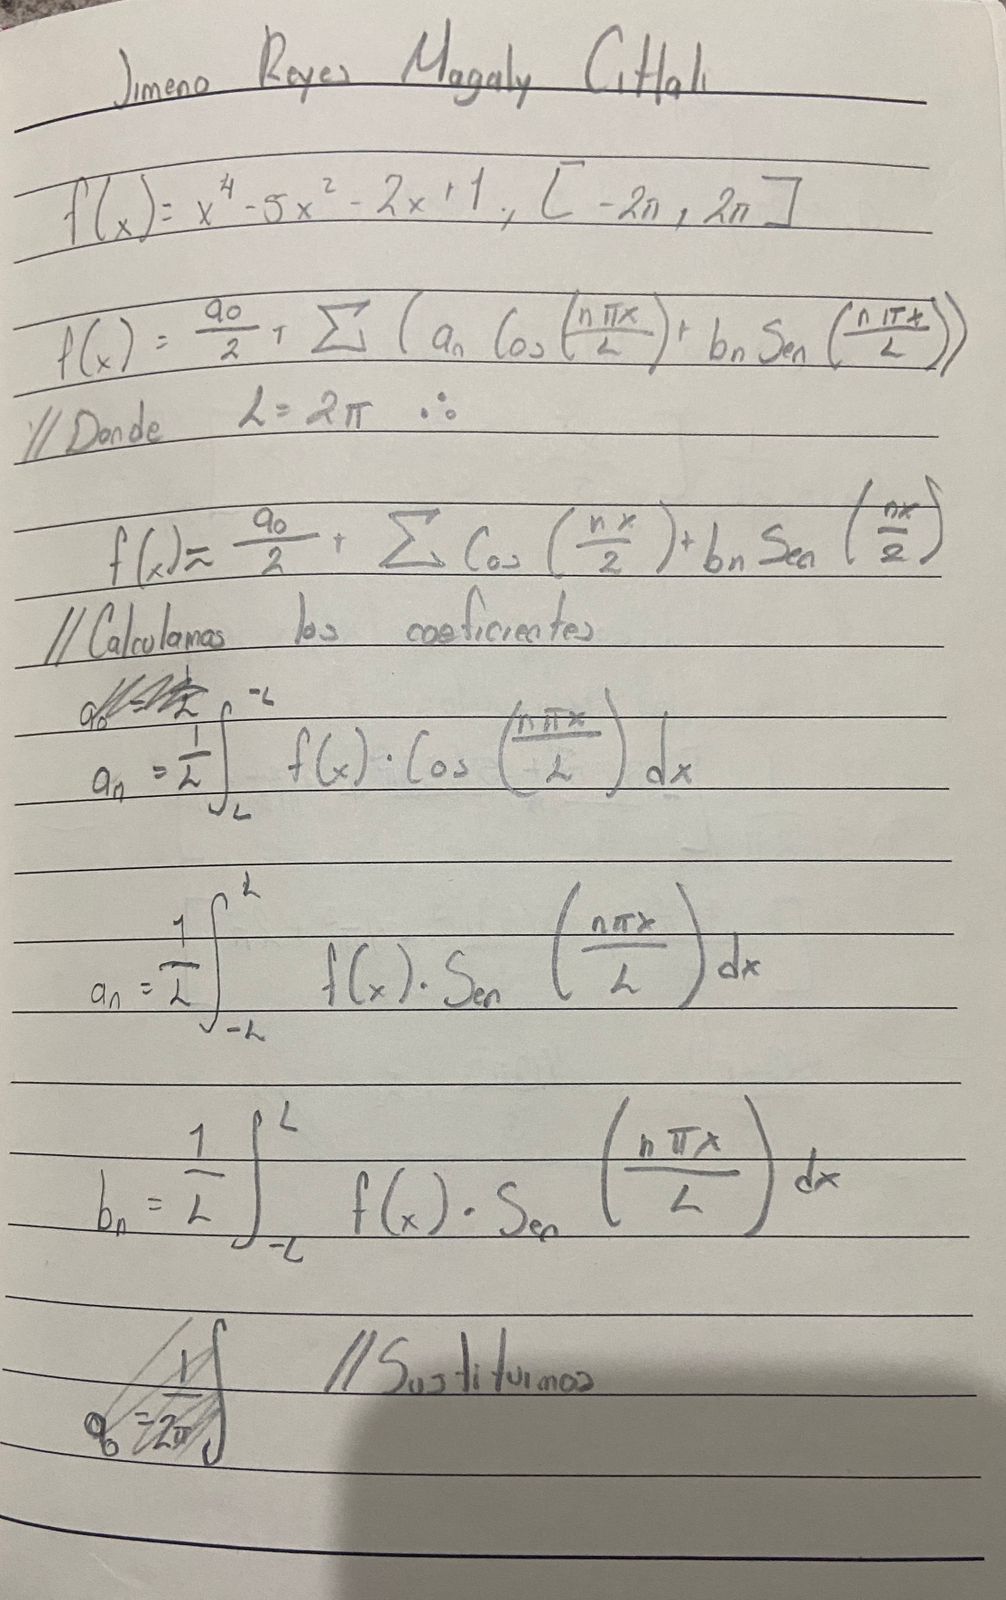 Jimeno Reyes Magaly Citlali
f(x) = x⁴ - 5x² - 2x + 1 ., [ -2π , 2π ]
f(x) = a₀/2 + Σ ( aₙ Cos (nπx/L) + bₙ Sen (nπx/L) )
// Donde L = 2π ∴
f(x) ≈ a₀/2 + Σ Cos (nx/2) + bₙ Sen (nx/2)
// Calculamos los coeficientes
aₙ = 1/L ∫_L^-L f(x) · Cos (nπx/L) dx
aₙ = 1/L ∫_-L^L f(x) · Sen (nπx/L) dx
bₙ = 1/L ∫_-L^L f(x) · Sen (nπx/L) dx
a₀ = 1/2π ∫ // Sustituimos